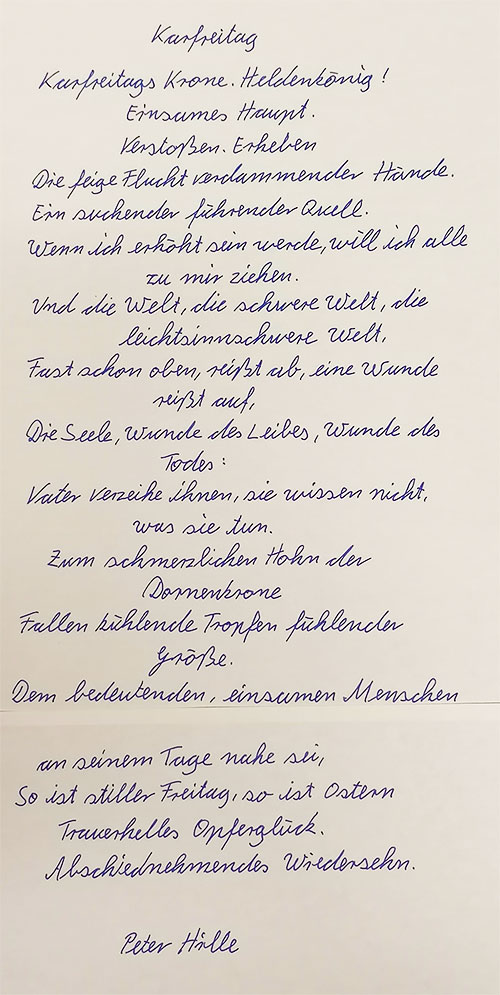 Karfreitag
Karfreitags Krone. Heldenkönig!
Einsames Haupt.
Verstoßen. Erheben
Die feige Flucht verdammender Hände.
Ein suchender führender Quell.
Wenn ich erhöht sein werde, will ich alle
zu mir ziehen.
Und die Welt, die schwere Welt, die
leichtsinnschwere Welt,
Fast schon oben, reißt ab, eine Wunde
reißt auf,
Die Seele, Wunde des Leibes, Wunde des
Todes:
Vater verzeihe ihnen, sie wissen nicht,
was sie tun.
Zum schmerzlichen Hohn der
Dornenkrone
Fallen kühlende Tropfen fühlender
Größe.
Dem bedeutenden, einsamen Menschen
an seinem Tage nahe sei,
So ist stiller Freitag, so ist Ostern
Trauerhelles Opferglück.
Abschiednehmendes Wiedersehn.
Peter Hille